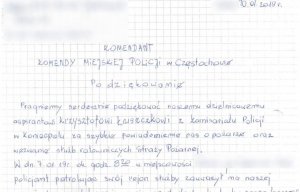 10.01.2019 r.
KOMENDANT
KOMENDY MIEJSKIEJ POLICJI w Częstochowie
Podziękowanie
Pragniemy serdecznie podziękować naszemu dzielnicowemu
aspirantowi Krzysztofowi Łuszczkowi z Komisariatu Policji
w Koniecpolu za szybkie powiadomienie nas o pożarze oraz
wezwanie służb ratowniczych Straży Pożarnej.
W dn. 7.01.19r. ok. godz. 8:30 w miejscowości
policjant patrolując swój rejon służby zauważył na naszej